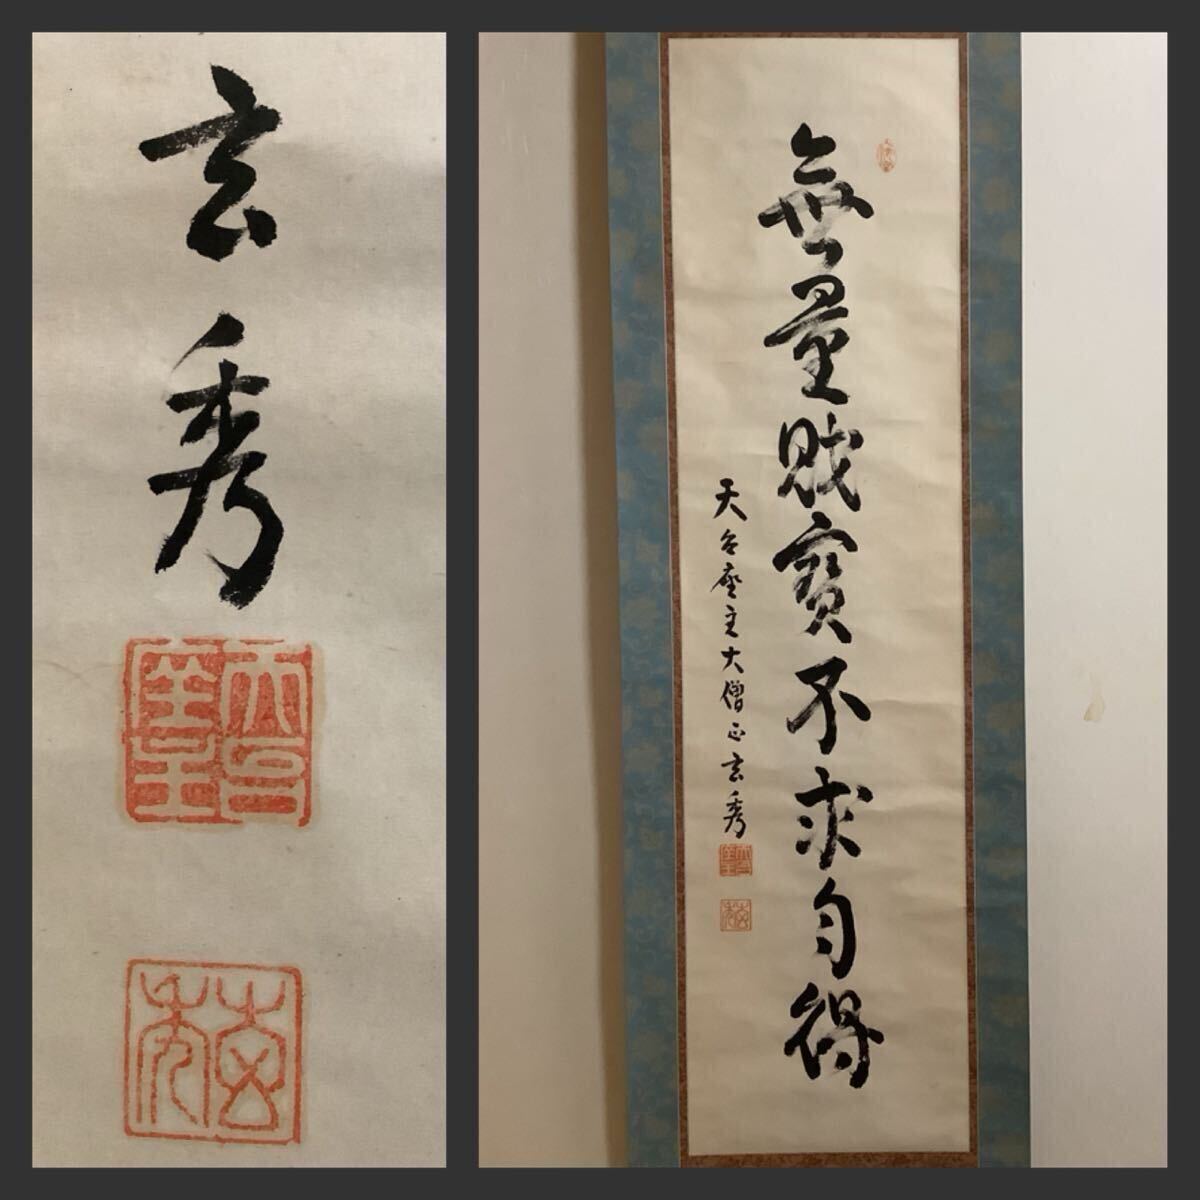 玄秀
無量財寳不求自得
天台座主大僧正玄秀
玄秀